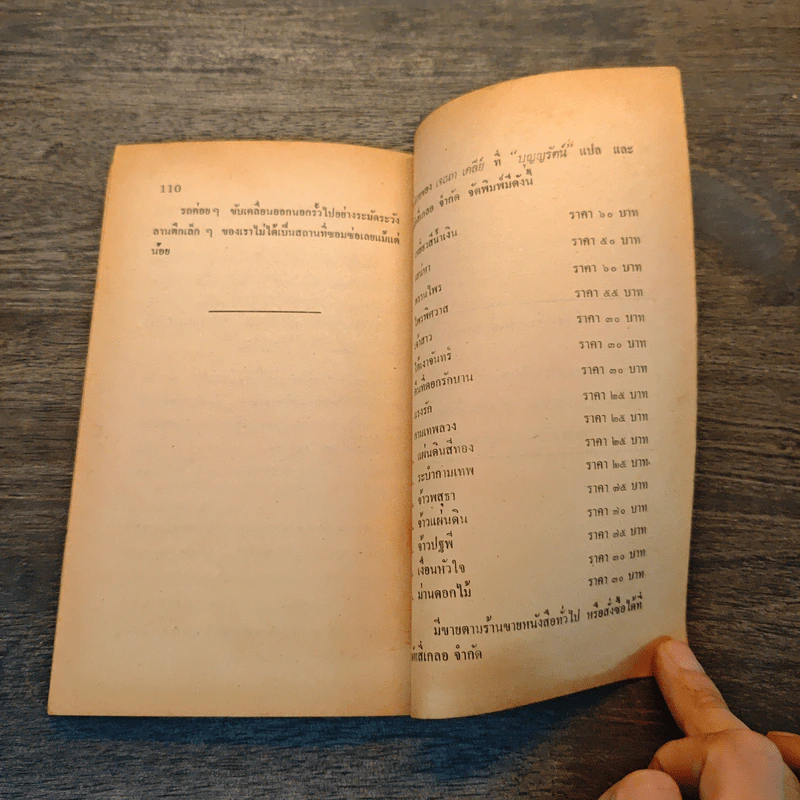 110
รถค่อยๆ ขับเคลื่อนออกนอกรั้วไปอย่างระมัดระวัง
ลานตึกเล็ก ๆ ของเราไม่ได้เป็นสถานที่ซอมซ่อเลยแม้แต่
น้อย
เคลีย์ ที่ "บุญญรัตน์" แปล และ
จำกัด จัดพิมพ์มีดังนี้
ราคา ๖๐ บาท
สีน้ำเงิน ราคา ๕๐ บาท
ราคา ๖๐ บาท
ไพร ราคา ๕๕ บาท
พิศวาส ราคา ๓๐ บาท
ราคา ๓๐ บาท
เงาจันทร์ ราคา ๓๐ บาท
ที่ดอกรักบาน ราคา ๒๕ บาท
รัก ราคา ๒๕ บาท
กามเทพลวง ราคา ๒๕ บาท
แผ่นดินสีทอง ราคา ๒๕ บาท
ระบำกามเทพ ราคา ๗๕ บาท
จ้าวพสุธา ราคา ๗๐ บาท
จ้าวแผ่นดิน ราคา ๗๕ บาท
จ้าวปฐพี ราคา ๓๐ บาท
เงื่อนหัวใจ ราคา ๓๐ บาท
ม่านดอกไม้
มีขายตามร้านขายหนังสือทั่วไป หรือสั่งซื้อได้ที่
สี่เกลอ จำกัด